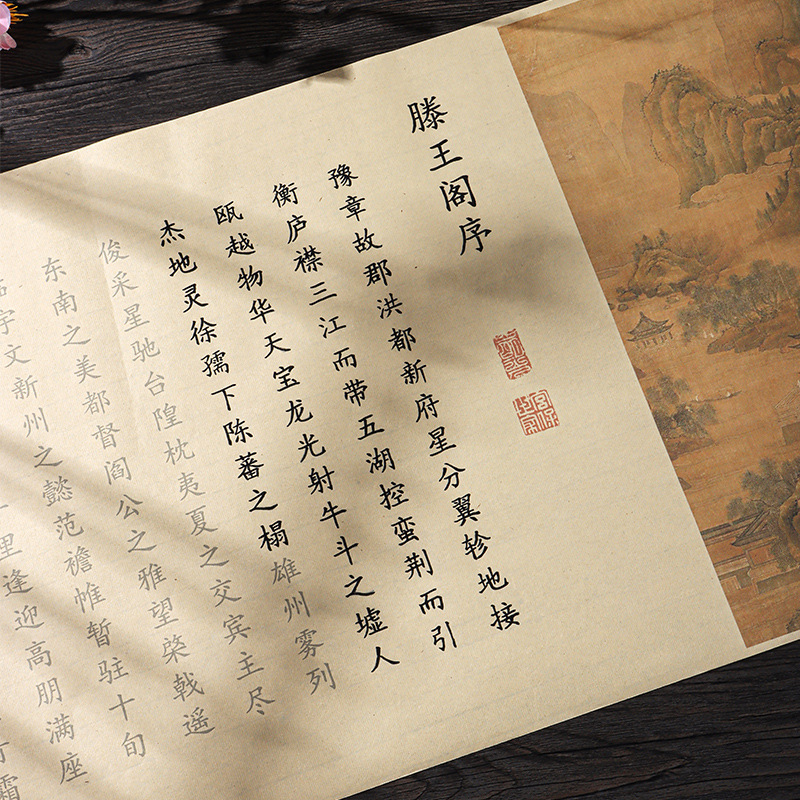 滕王阁序
豫章故郡洪都新府星分翼轸地接
衡庐襟三江而带五湖控蛮荆而引
瓯越物华天宝龙光射牛斗之墟人
杰地灵徐孺下陈蕃之榻雄州雾列
俊采星驰台隍枕夷夏之交宾主尽
东南之美都督阎公之雅望棨戟遥
宇文新州之懿范襜帷暂驻十旬
里逢迎高朋满座
霜